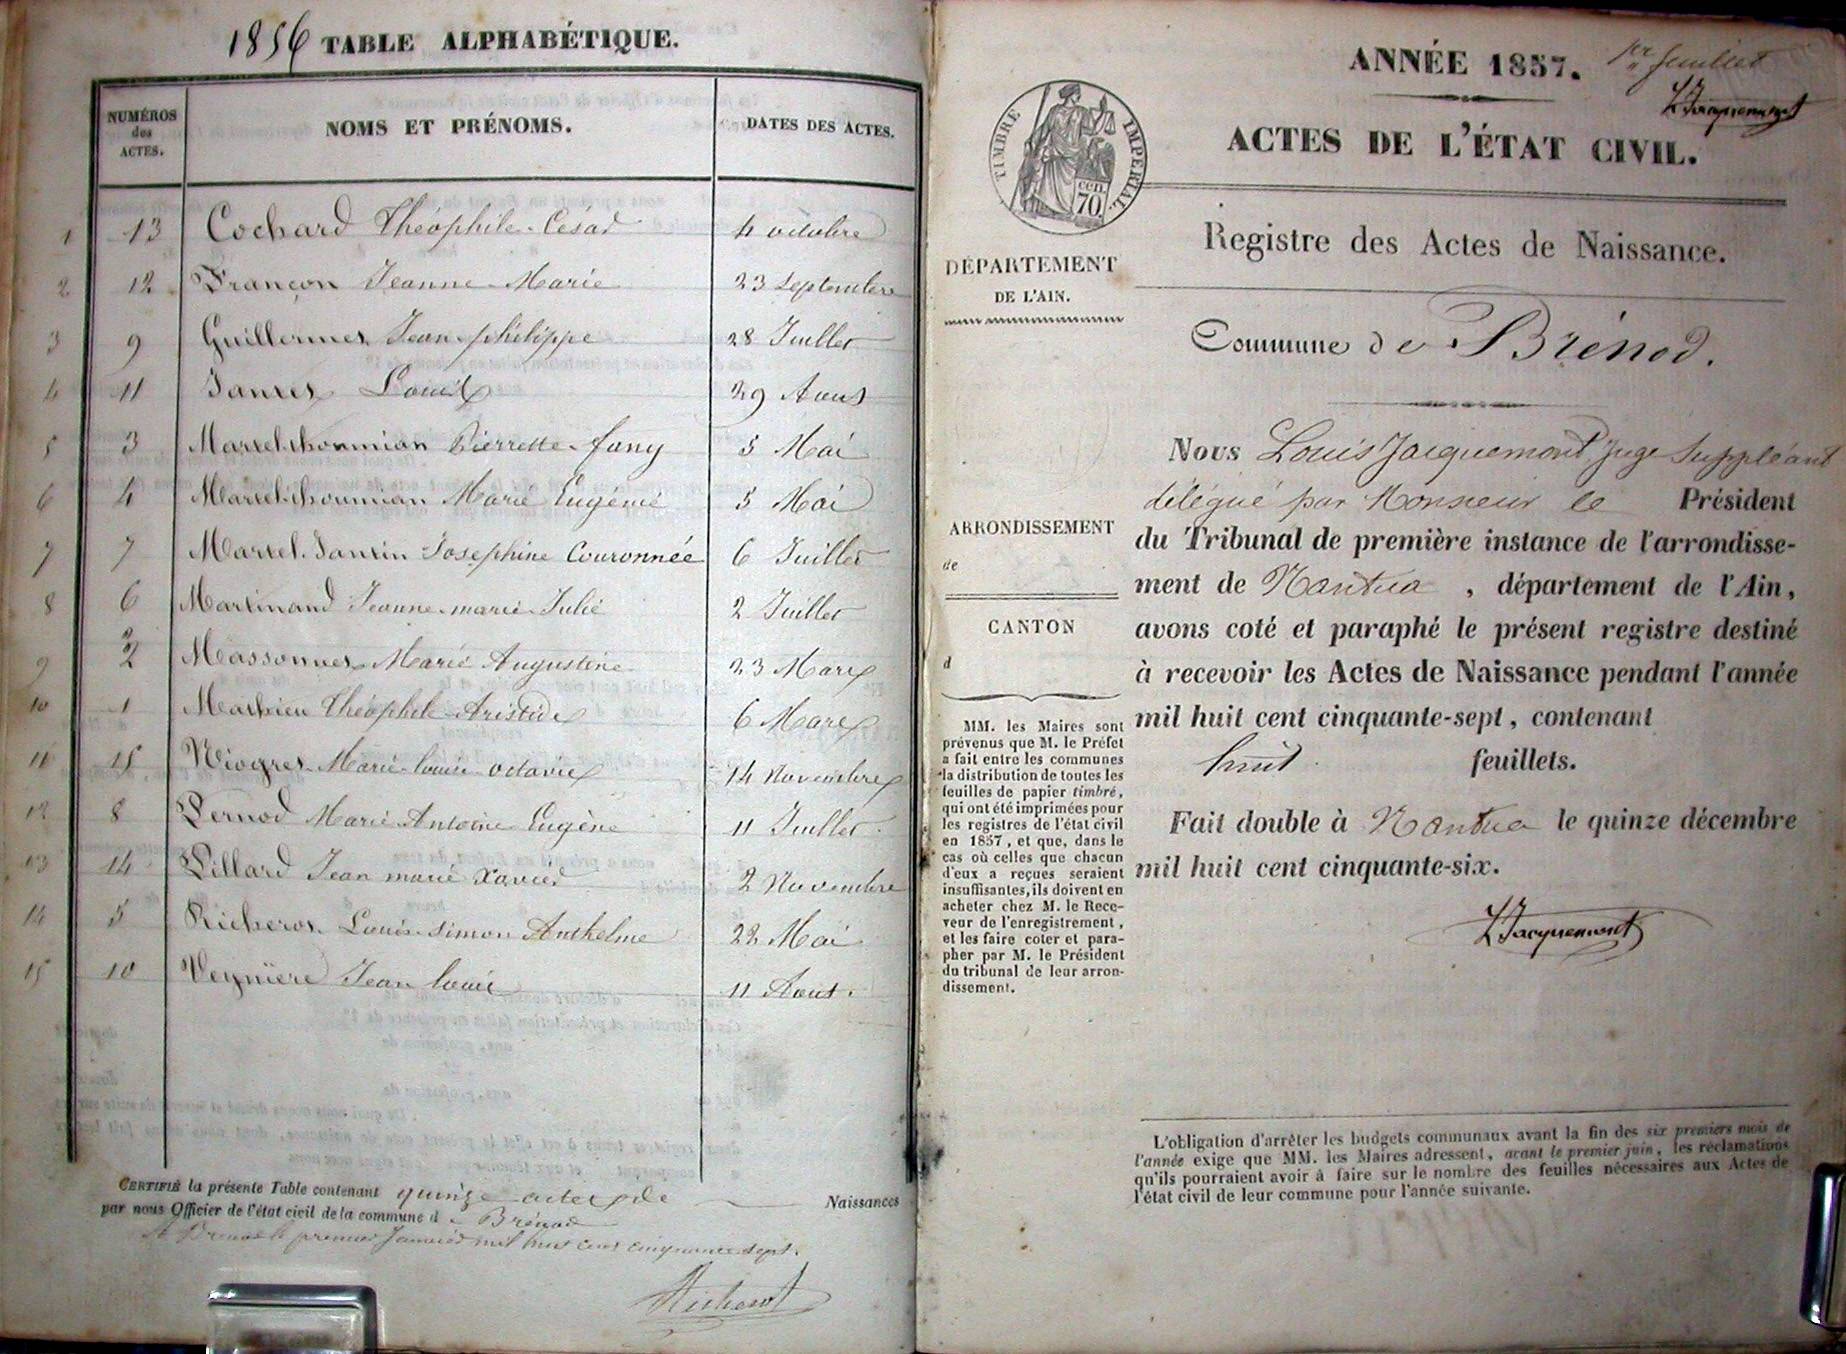 1856 TABLE ALPHABÉTIQUE.
NUMÉROS
des
ACTES.
NOMS ET PRÉNOMS.
DATES DES ACTES.
1 13 Cochard Théophile-César 4 octobre
2 12 Françon Jeanne-Marie 23 Septembre
3 9 Guillermet Jean-philippe 28 Juillet
4 11 Louis 29 Aout
5 3 Martel Pierrette-fany 5 Mai
6 4 Martel Marie Eugénie 5 Mai
7 7 Martel-Jantin Josephine Couronnée 6 Juillet
8 6 Martinand Jeanne-marie-Julie 2 Juillet
9 2 Massonnet Marie Augustine 23 Mars
10 1 Mathieu Théophile-Aristide 6 Mars
11 15 Niogret Marie-louise-octavie 14 Novembre
12 8 Pernod Marie-Antoine-Eugène 11 Juillet
13 14 Pillard Jean marie Xavier 2 Novembre
14 5 Richerot Louis-Simon Anthelme 22 Mai
15 10 Jean louis 11 Aout.
CERTIFIÉ la présente Table contenant quinze actes de Naissances
par nous Officier de l'état civil de la commune d e Brénod
A Brenod le premier Janvier mil huit cent cinquante sept.
Richerot
ANNÉE 1857. 1er feuillet
L Jacquemont
ACTES DE L'ÉTAT CIVIL.
TIMBRE IMPÉRIAL
cen.
70.
DÉPARTEMENT
DE L'AIN.
Registre des Actes de Naissance.
Commune de Brénod.
ARRONDISSEMENT
de
CANTON
d
MM. les Maires sont
prévenus que M. le Préfet
a fait entre les communes
la distribution de toutes les
feuilles de papier timbré,
qui ont été imprimées pour
les registres de l'état civil
en 1857, et que, dans le
cas où celles que chacun
d'eux a reçues seraient
insuffisantes, ils doivent en
acheter chez M. le Rece-
veur de l'enregistrement,
et les faire coter et para-
pher par M. le Président
du tribunal de leur arron-
dissement.
Nous Louis Jacquemont Juge Suppléant
délégué par Monsieur le Président
du Tribunal de première instance de l'arrondisse-
ment de Nantua, département de l'Ain,
avons coté et paraphé le présent registre destiné
à recevoir les Actes de Naissance pendant l'année
mil huit cent cinquante-sept, contenant
huit feuillets.
Fait double à Nantua le quinze décembre
mil huit cent cinquante-six.
L Jacquemont
L'obligation d'arrêter les budgets communaux avant la fin des six premiers mois de
l'année exige que MM. les Maires adressent, avant le premier juin, les réclamations
qu'ils pourraient avoir à faire sur le nombre des feuilles nécessaires aux Actes de
l'état civil de leur commune pour l'année suivante.